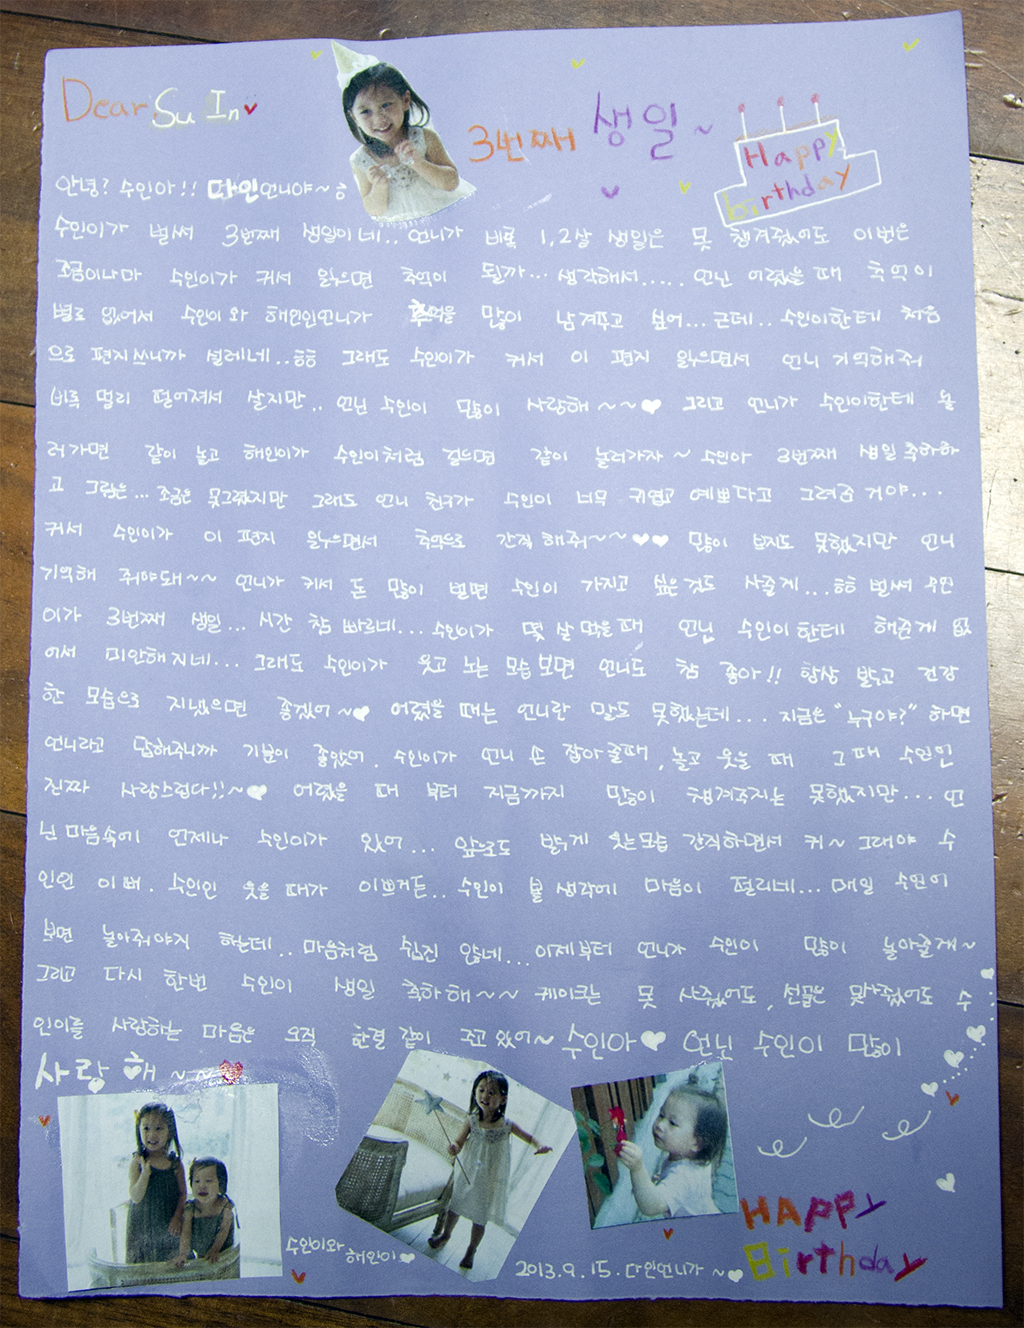 Dear Su In
3번째 생일~
Happy
birthday
안녕? 수인아!! 다인언니야~ ㅎ
수인이가 벌써 3번째 생일이네.. 언니가 비록 1,2살 생일은 못 챙겨줬어도 이번은
조금이나마 수인이가 커서 읽으면 추억이 될까... 생각해서..... 언닌 어렸을때 추억이
별로 없어서 수인이와 해인인언니가 추억을 많이 남겨주고 싶어... 근데.. 수인이한테 처음
으로 편지쓰니까 설레네..ㅎㅎ 그래도 수인이가 커서 이 편지 읽으면서 언니 기억해줘
비록 멀리 떨어져서 살지만.. 언닌 수인이 많이 사랑해~~ 그리고 언니가 수인이한테 놀
러가면 같이 놀고 해인이가 수인이처럼 걸으면 같이 놀러가자~ 수인아 3번째 생일축하하
고 그림은... 조금은 못그렸지만 그래도 언니 친구가 수인이 너무 귀엽고 예쁘다고 그려준거야...
커서 수인이가 이 편지 읽으면서 추억으로 간직해줘~~ 많이 보지도 못했지만 언니
기억해 줘야돼~~ 언니가 커서 돈 많이 벌면 수인이 가지고 싶은것도 사줄게...ㅎㅎ 벌써 수인
이가 3번째 생일... 시간 참 빠르네... 수인이가 몇 살 먹을때 언닌 수인이한테 해준게 없
어서 미안해지네... 그래도 수인이가 웃고 노는 모습보면 언니도 참 좋아!! 항상 밝고 건강
한 모습으로 지냈으면 좋겠어~ 어렸을때는 언니란 말도 못했는데... 지금은 "누구야?" 하면
언니라고 답해주니까 기분이 좋았어. 수인이가 언니 손 잡아줄때, 놀고 웃을 때 그때 수인인
진짜 사랑스럽다!!~ 어렸을 때 부터 지금까지 많이 챙겨주지는 못했지만... 언
닌 마음속에 언제나 수인이가 있어... 앞으로도 밝게 웃는모습 간직하면서 커~ 그래야 수
인인 이뻐. 수인인 웃을 때가 이쁘거든.. 수인이 볼 생각에 마음이 떨리네... 매일 수인이
보면 놀아줘야지 하는데.. 마음처럼 쉽진 않네... 이제부터 언니가 수인이 많이 놀아줄게~
그리고 다시 한번 수인이 생일 축하해~~ 케이크는 못 사줬어도, 선물은 못사줬어도 수
인이를 사랑하는 마음은 오직 한결같이 있어~ 수인아 언닌 수인이 많이
사랑해~~
수인이와
해인이
2013.9.15. 다인언니가~
HAPPY
Birthday